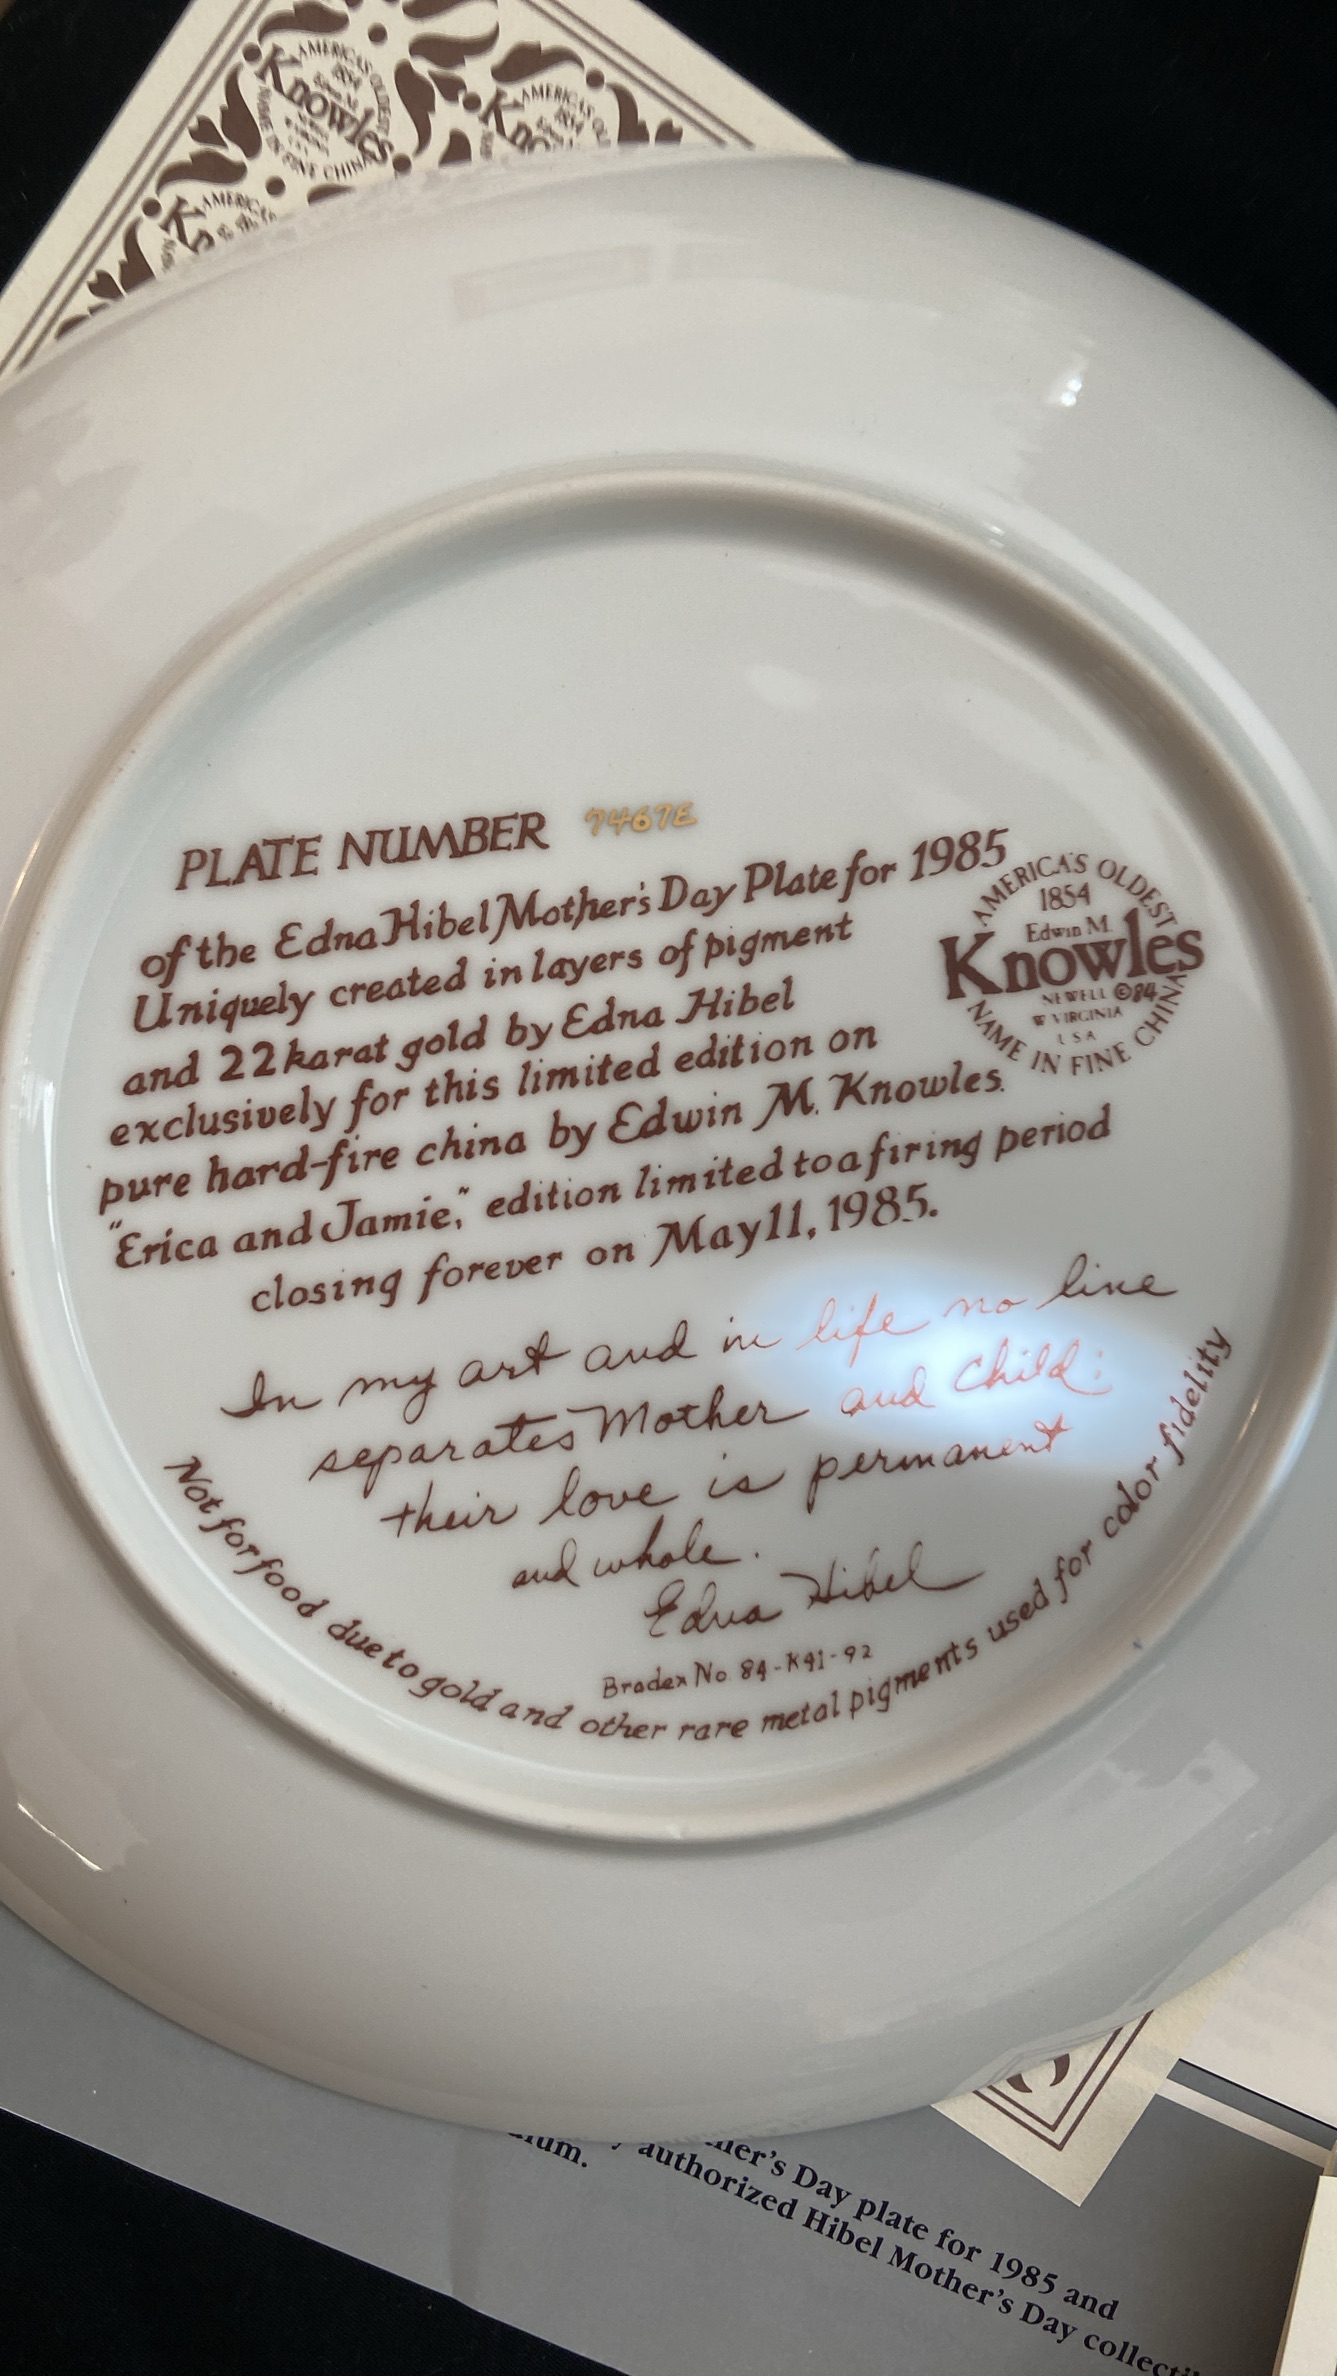 AMERICA'S OLDEST
1854
Knowles
NAME IN FINE CHINA
AMERICA'S OL
1854
AMERICA'S
PLATE NUMBER 7467E
of the Edna Hibel Mother's Day Plate for 1985
Uniquely created in layers of pigment
and 22 karat gold by Edna Hibel
exclusively for this limited edition on
pure hard-fire china by Edwin M. Knowles.
"Erica and Jamie," edition limited to a firing period
closing forever on May 11, 1985.
AMERICA'S OLDEST
1854
Edwin M.
Knowles
NEWELL ©84
W VIRGINIA
USA
NAME IN FINE CHINA
In my art and in life no line
separates Mother and Child:
their love is permanent
and whole.
Edna Hibel
Bradex No. 84-K41-92
Not for food due to gold and other rare metal pigments used for color fidelity
ner's Day plate for 1985 and
authorized Hibel Mother's Day collecti
ium.